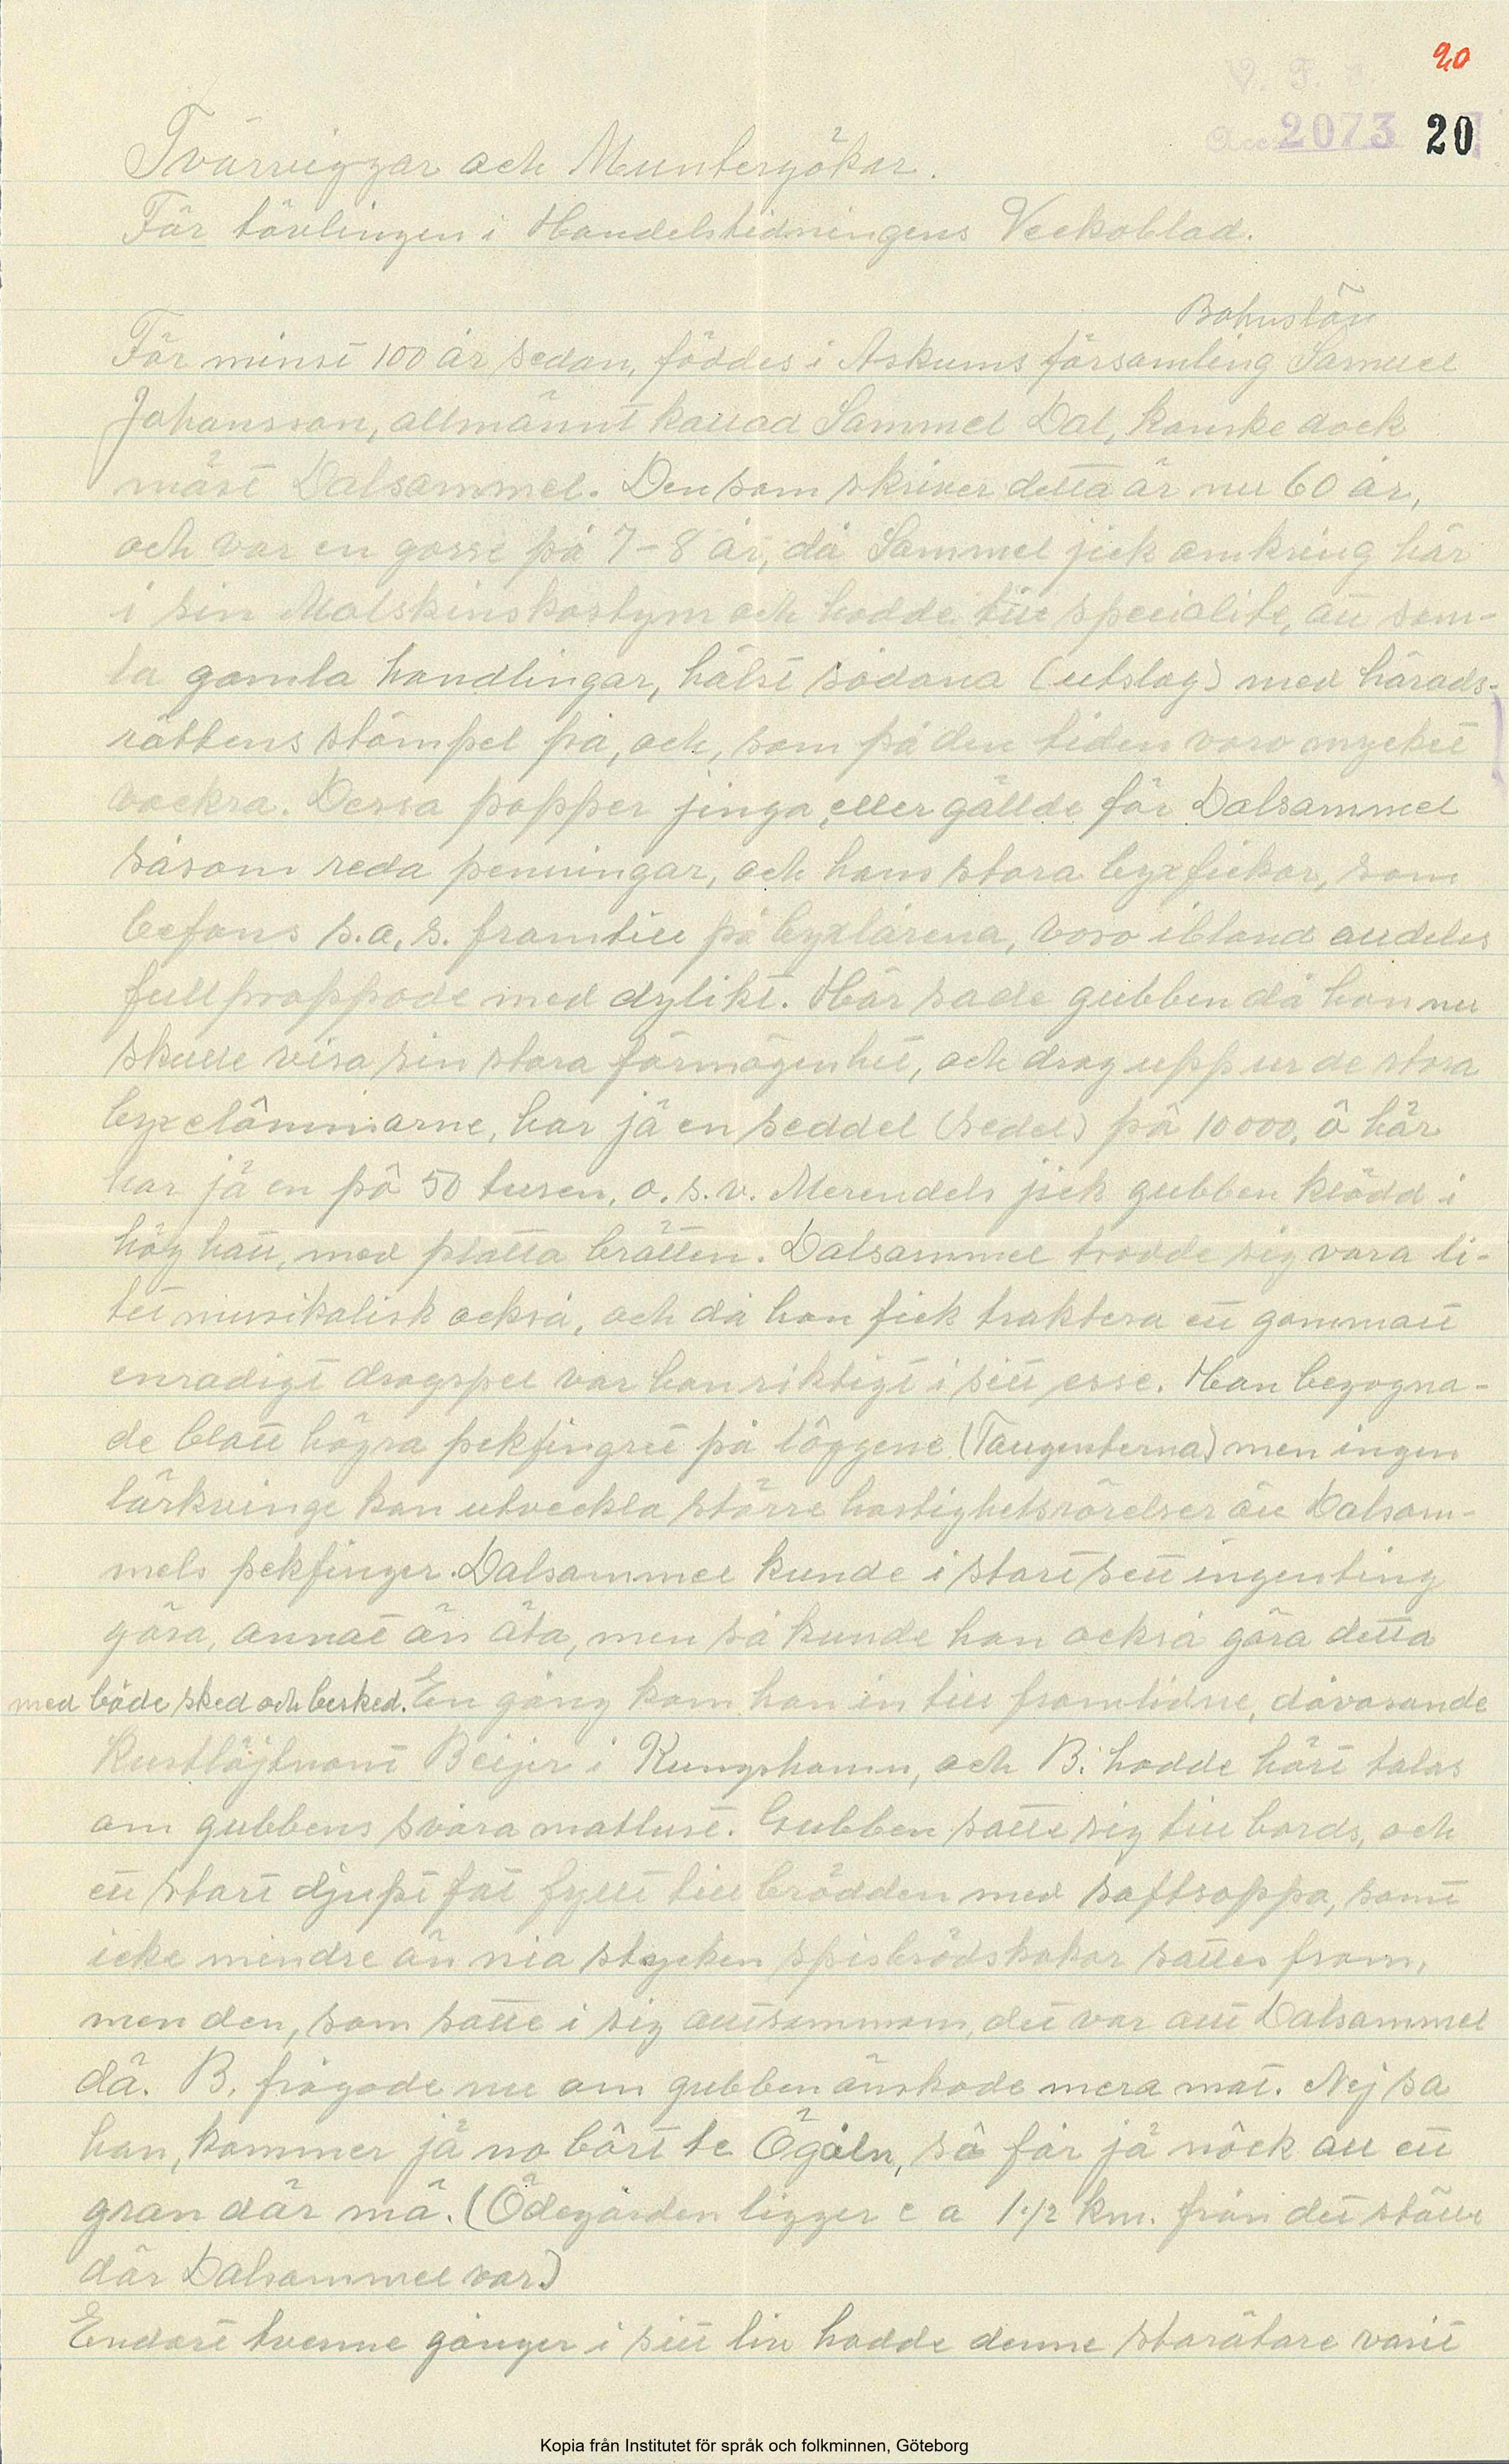 20
V. F.
Acc 2073 20
Tvärviggar och Muntergökar.
För tävlingen i Handelstidningens Veckoblad.
Bohuslän
För minst 100 år sedan, föddes i Askums församling Samuel
Johansson, allmännt kallad Sammel Dal, kanske dock
mäst Dalsammel. Den som skriver detta är nu 60 år,
och var en gosse på 7-8 år, då Sammel jick omkring här
i sin Malskinskostym och hadde till specialite, att sam-
la gamla handlingar, hälst sådana (utslag) med härads-
rättens stämpel på, och, som på den tiden voro mycket
vackra. Dessa papper jinga, eller gällde för Dalsammel
såsom reda penningar, och hans stora byxfickor, som
befans s.a.s. framtill på byxlårena, voro ibland alldeles
fullproppade med dylikt. Här sade gubben då han nu
skulle visa sin stora förmögenhet, och drog upp ur de stora
byxelömmarne, har jä en seddel (sedel) på 10000, å här
har jä en på 50 tusen, o.s.v. Merendels jick gubben klädd i
hög hatt, med platta brätten. Dalsammel trodde sig vara li-
tet musikalisk också, och då han fick traktera ett gammalt
enradigt dragspel var han riktigt i sitt esse. Han begagna-
de blott högra pekfingret på löggene (Tangenterna) men ingen
lärkvinge kan utveckla större hastighetsrörelser än Dalsam-
mels pekfinger. Dalsammel kunde i stort sett ingenting
göra, annat än äta, men så kunde han också göra detta
med både sked och besked. En gång kom han in till framlidne, dåvarande
Kustlöjtnant Beijer i Kungshamn, och B. hadde hört talas
om gubbens svåra matlust. Gubben satte sig till bords, och
ett stort djupt fat fyllt till brädden med saftsoppa, samt
icke mindre än nia stycken spisbrödskakor sattes fram,
men den, som satte i sig alltsammans, det var allt Dalsammel
dä. B. frågade nu om gubben önskade mera mat. Nej sa
han, kommer jä no bört te Ögåln, så får jä nöck att ett
gran där mä. (Ödegården ligger c a 1 1/2 km. från det ställe
där Dalsammel var.)
Endast tvenne gånger i sitt liv hadde denne storätare varit
Kopia från Institutet för språk och folkminnen, Göteborg